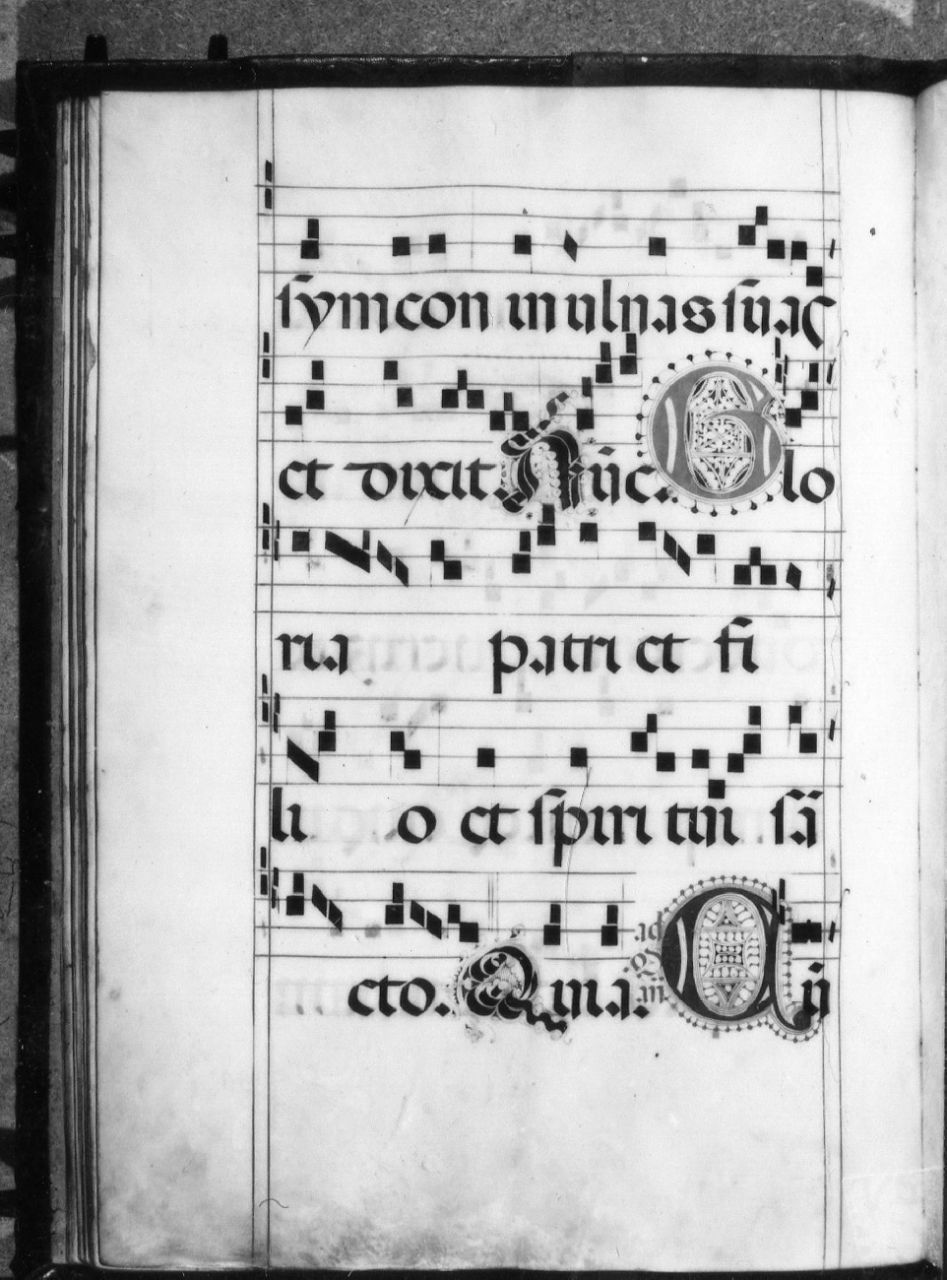 symeon in ulnas suas
et dixit. Nūc. Glo
ria patri et fi
li o et spiri tui sā
cto. Quia. ad A ii